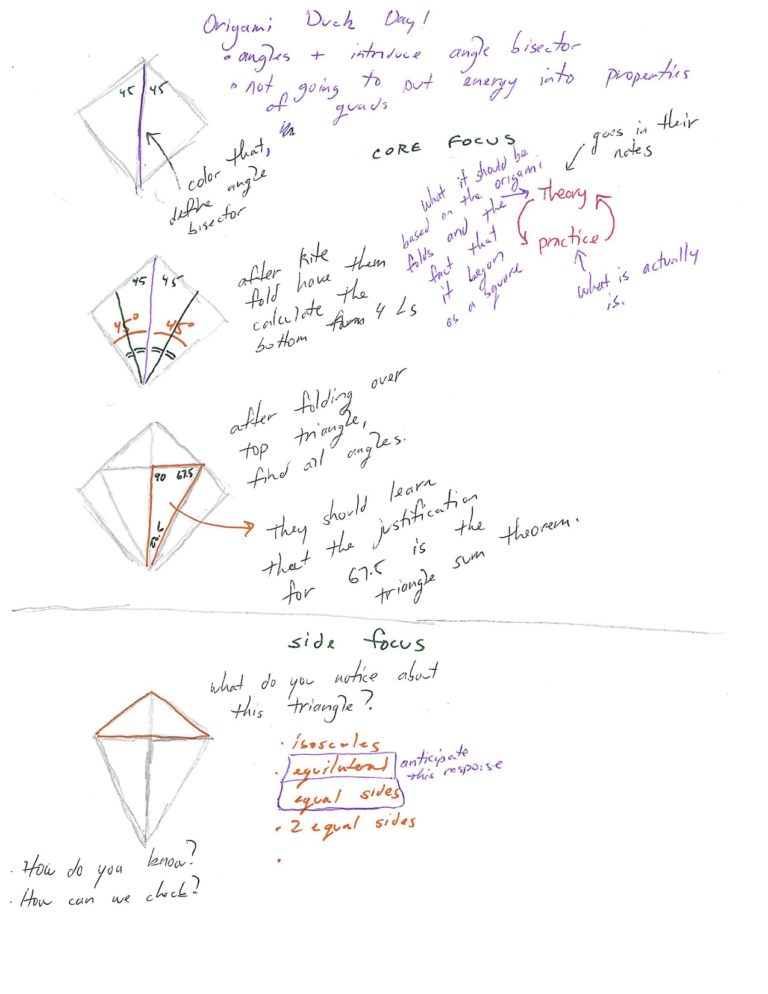 Origami Duck Day!
• angles + introduce angle bisector
• not going to put energy into properties
of quads
45 45
color that,
define angle
bisector
CORE FOCUS
goes in their
notes
what it should be
based on the origami
folds and the
fact that
it began
as a square
Theory
practice
what is actually
is.
45 45
45° 45°
after kite
fold have them
calculate the
bottom 4 ∠s
after folding over
top triangle,
find all angles.
90 67.5
they should learn
that the justification
for 67.5 is the
triangle sum theorem.
side focus
what do you notice about
this triangle?
• isosceles
• equilateral
equal sides
anticipate
this response
• 2 equal sides
•
• How do you know?
• How can we check?